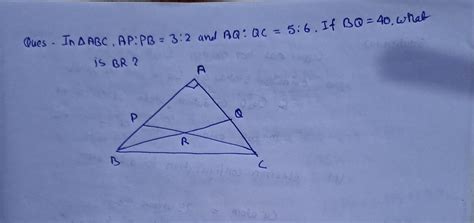 Ques - In △ABC, AP:PB = 3:2 and AQ:QC = 5:6. If BQ = 40, what
is BR?
A
P
Q
R
B
C